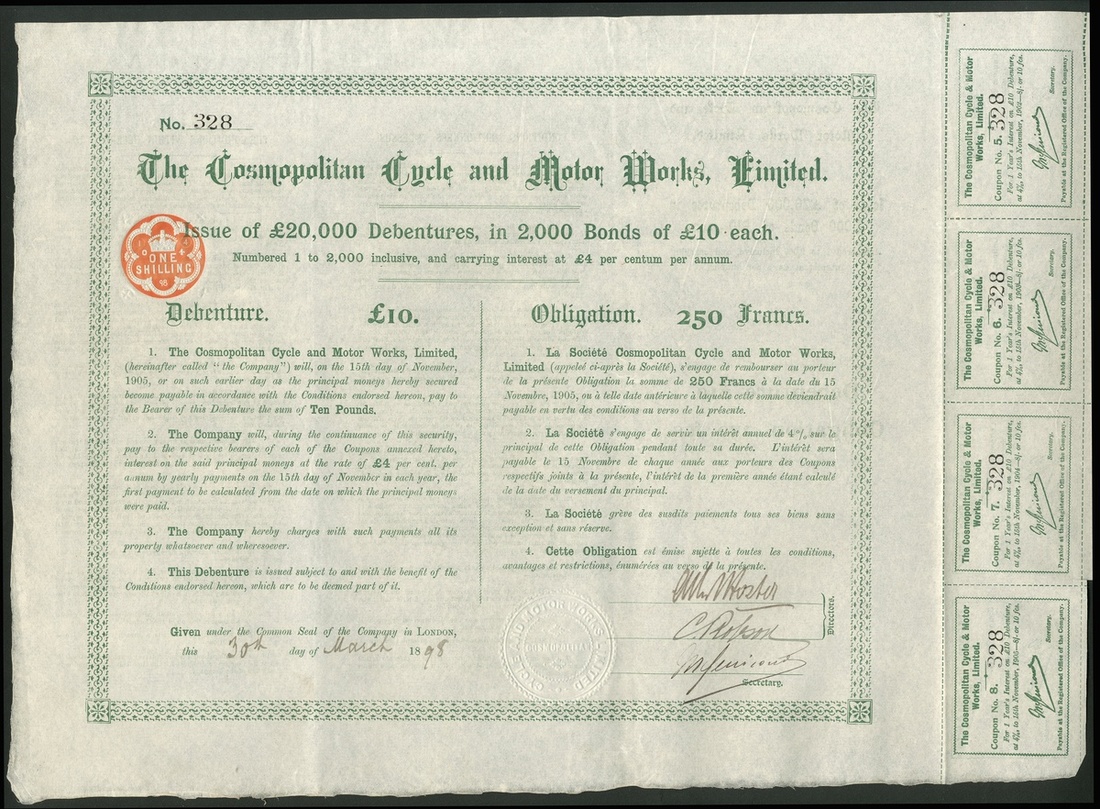 No. 328
The Cosmopolitan Cycle and Motor Works, Limited.
Issue of £20,000 Debentures, in 2,000 Bonds of £10 each.
Numbered 1 to 2,000 inclusive, and carrying interest at £4 per centum per annum.
ONE
SHILLING
98
Debenture. £10.
1. The Cosmopolitan Cycle and Motor Works, Limited,
(hereinafter called "the Company") will, on the 15th day of November,
1905, or on such earlier day as the principal moneys hereby secured
become payable in accordance with the Conditions endorsed hereon, pay to
the Bearer of this Debenture the sum of Ten Pounds.
2. The Company will, during the continuance of this security,
pay to the respective bearers of each of the Coupons annexed hereto,
interest on the said principal moneys at the rate of £4 per cent. per
annum by yearly payments on the 15th day of November in each year, the
first payment to be calculated from the date on which the principal moneys
were paid.
3. The Company hereby charges with such payments all its
property whatsoever and wheresoever.
4. This Debenture is issued subject to and with the benefit of the
Conditions endorsed hereon, which are to be deemed part of it.
Given under the Common Seal of the Company in LONDON,
this 30th day of March 1898
Obligation. 250 Francs.
1. La Société Cosmopolitan Cycle and Motor Works,
Limited (appelée ci-après la Société), s'engage de rembourser au porteur
de la présente Obligation la somme de 250 Francs à la date du 15
Novembre, 1905, ou à telle date antérieure à laquelle cette somme deviendrait
payable en vertu des conditions au verso de la présente.
2. La Société s'engage de servir un intérêt annuel de 4% sur le
principal de cette Obligation pendant toute sa durée. L'intérêt sera
payable le 15 Novembre de chaque année aux porteurs des Coupons
respectifs joints à la présente, l'intérêt de la première année étant calculé
de la date du versement du principal.
3. La Société grève des susdits paiements tous ses biens sans
exception et sans réserve.
4. Cette Obligation est émise sujette à toutes les conditions,
avantages et restrictions, énumérées au verso de la présente.
Directors.
Secretary.
CYCLE AND MOTOR WORKS LIMITED
COSMOPOLITAN
The Cosmopolitan Cycle & Motor
Works, Limited.
Coupon No. 5. 328
For 1 Year's Interest on £10 Debenture,
at 4%, to 15th November, 1902—8/- or 10 fcs.
Secretary.
Payable at the Registered Office of the Company.
The Cosmopolitan Cycle & Motor
Works, Limited.
Coupon No. 6. 328
For 1 Year's Interest on £10 Debenture,
at 4%, to 15th November, 1903—8/- or 10 fcs.
Secretary.
Payable at the Registered Office of the Company.
The Cosmopolitan Cycle & Motor
Works, Limited.
Coupon No. 7. 328
For 1 Year's Interest on £10 Debenture,
at 4%, to 15th November, 1904—8/- or 10 fcs.
Secretary.
Payable at the Registered Office of the Company.
The Cosmopolitan Cycle & Motor
Works, Limited.
Coupon No. 8. 328
For 1 Year's Interest on £10 Debenture,
at 4%, to 15th November, 1905—8/- or 10 fcs.
Secretary.
Payable at the Registered Office of the Company.